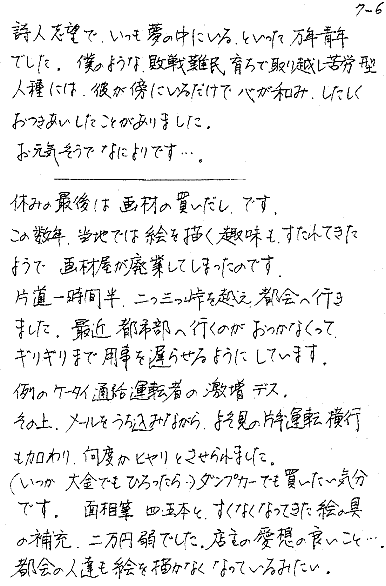 7-6
詩人志望で、いつも夢の中にいる、といった 万年青年
でした。僕のような、敗戦難民育ちで取り越し苦労型
人種には、彼が傍にいるだけで心が和み、したしく
おつきあいしたことがありました。
お元気そうでなによりです…。
休みの最後は 画材の買いだし、です。
この数年、当地では絵を描く趣味も、すたれてきた
ようで 画材屋が廃業してしまったのです。
片道一時間半、二つ三つ峠を越え、都会へ行き
ました。最近 都市部へ行くのが おっかなくって
ギリギリまで用事を遅らせるようにしています。
例のケータイ通話運転者の激増 デス。
その上、メールをうち込みながら、よそ見の片手運転横行
も加わり、何度かヒヤリとさせられました。
(いつか 大金でもひろったら…)ダンプカーでも買いたい気分
です。 面相筆 四五本と、すくなくなってきた絵の具
の補充、二万円弱でした。店主の愛想の良いこと…。
都会の人達も絵を描かなくなっているみたい。